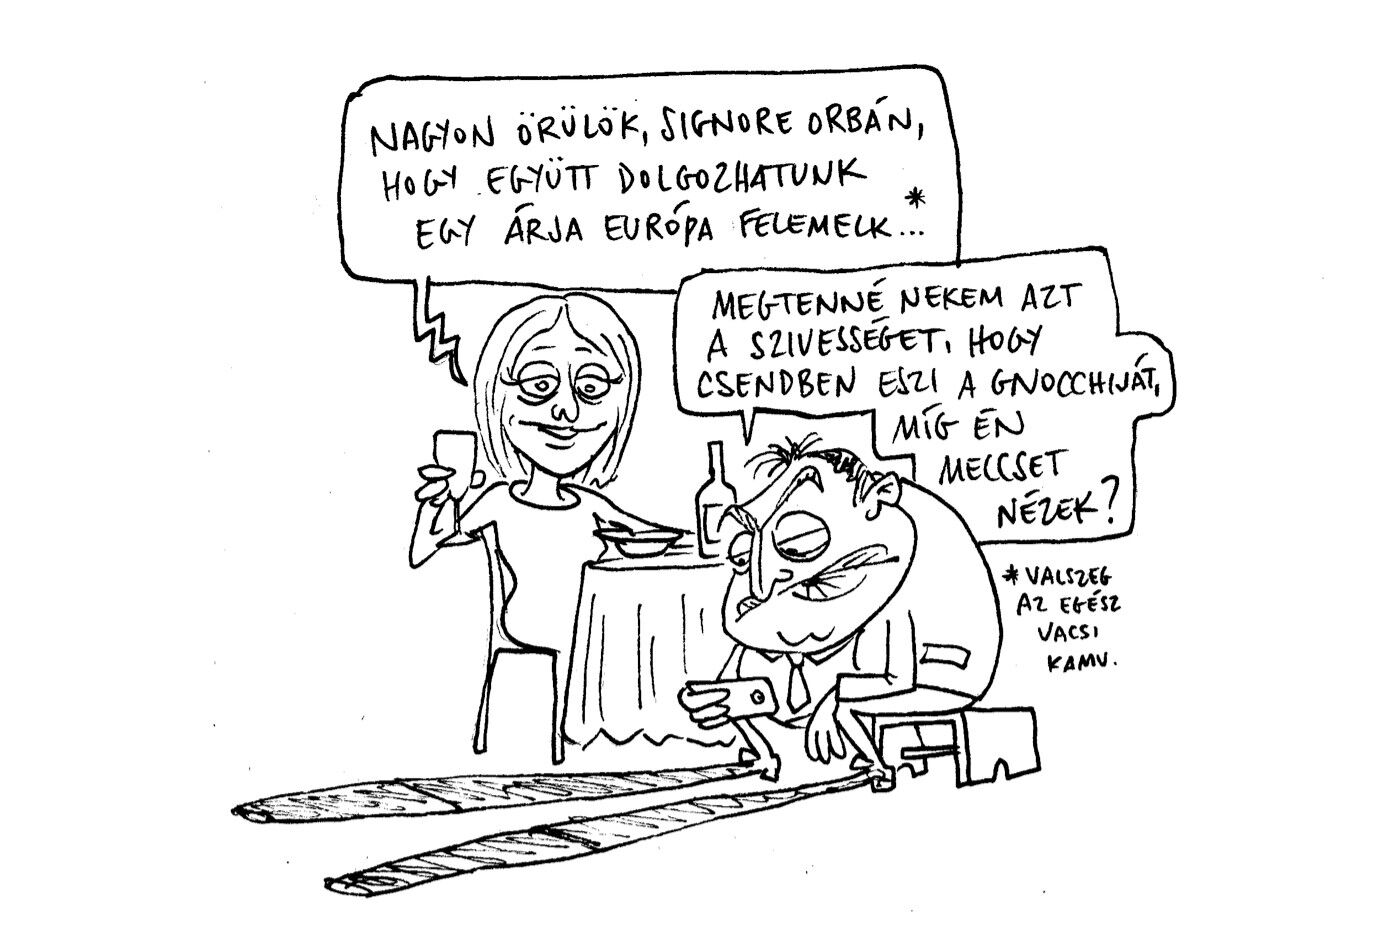 NAGYON ÖRÜLÖK, SIGNORE ORBÁN,
HOGY EGYÜTT DOLGOZHATUNK
EGY ÁRJA EURÓPA FELEMELK...*
MEGTENNÉ NEKEM AZT
A SZIVESSÉGET, HOGY
CSENDBEN ESZI A GNOCCHIJÁT,
MÍG ÉN
MECCSET
NÉZEK?
* VALSZEG
AZ EGÉSZ
VACSI
KAMU.